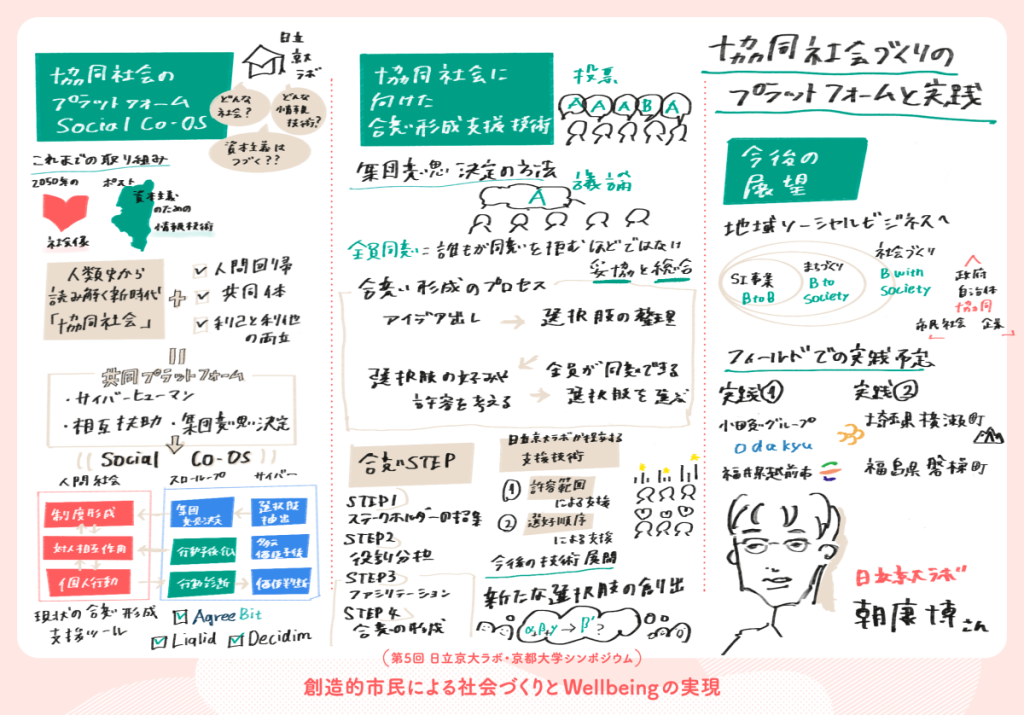 協同社会の
プラットフォーム
Social Co-OS
日立
京大
ラボ
どんな
社会?
どんな
情報
技術?
資本主義は
つづく??
これまでの取り組み
2050年の
社会像
ポスト
資本主義
のための
情報技術
人類史から
読み解く新時代
「協同社会」
+
人間回帰
共同体
利己と利他
の両立
共同プラットフォーム
・サイバーヒューマン
・相互扶助・集団意思決定
Social Co-OS
人間社会
スローループ
サイバー
制度形成
集団
意思決定
選択肢
抽出
対人相互作用
行動
価値
個人行動
行動診断
現状の合意形成
支援ツール
AgreeBit
Liqlid
Decidim
協同社会に
向けた
合意形成支援技術
投票
A A A B A
集団意思決定の方法
議論
A
全員同意:誰もが同意を拒むほどではない
妥協と統合
合意形成のプロセス
アイデア出し → 選択肢の整理
選択肢の好みや
許容を考える
全員が同意できる
選択肢を選ぶ
合意STEP
STEP1
ステークホルダーの招集
STEP2
役割分担
STEP3
ファシリテーション
STEP4
合意の形成
日立京大ラボが担当する
支援技術
① 許容範囲
による支援
② 選好順序
による支援
今後の技術展開
新たな選択肢の創り出
α,β,γ → β'?
協同社会づくりの
プラットフォームと実践
今後の
展望
地域ソーシャルビジネスへ
SI事業
BtoB
まちづくり
B to
Society
社会づくり
B with
Society
政府
自治体
協同
市民社会 企業
フィールドでの実践予定
実践①
小田急グループ
Odakyu
福井県越前市
実践②
埼玉県横瀬町
福島県磐梯町
日立京大ラボ
朝康博さん
(第5回 日立京大ラボ・京都大学シンポジウム)
創造的市民による社会づくりとWellbeingの実現